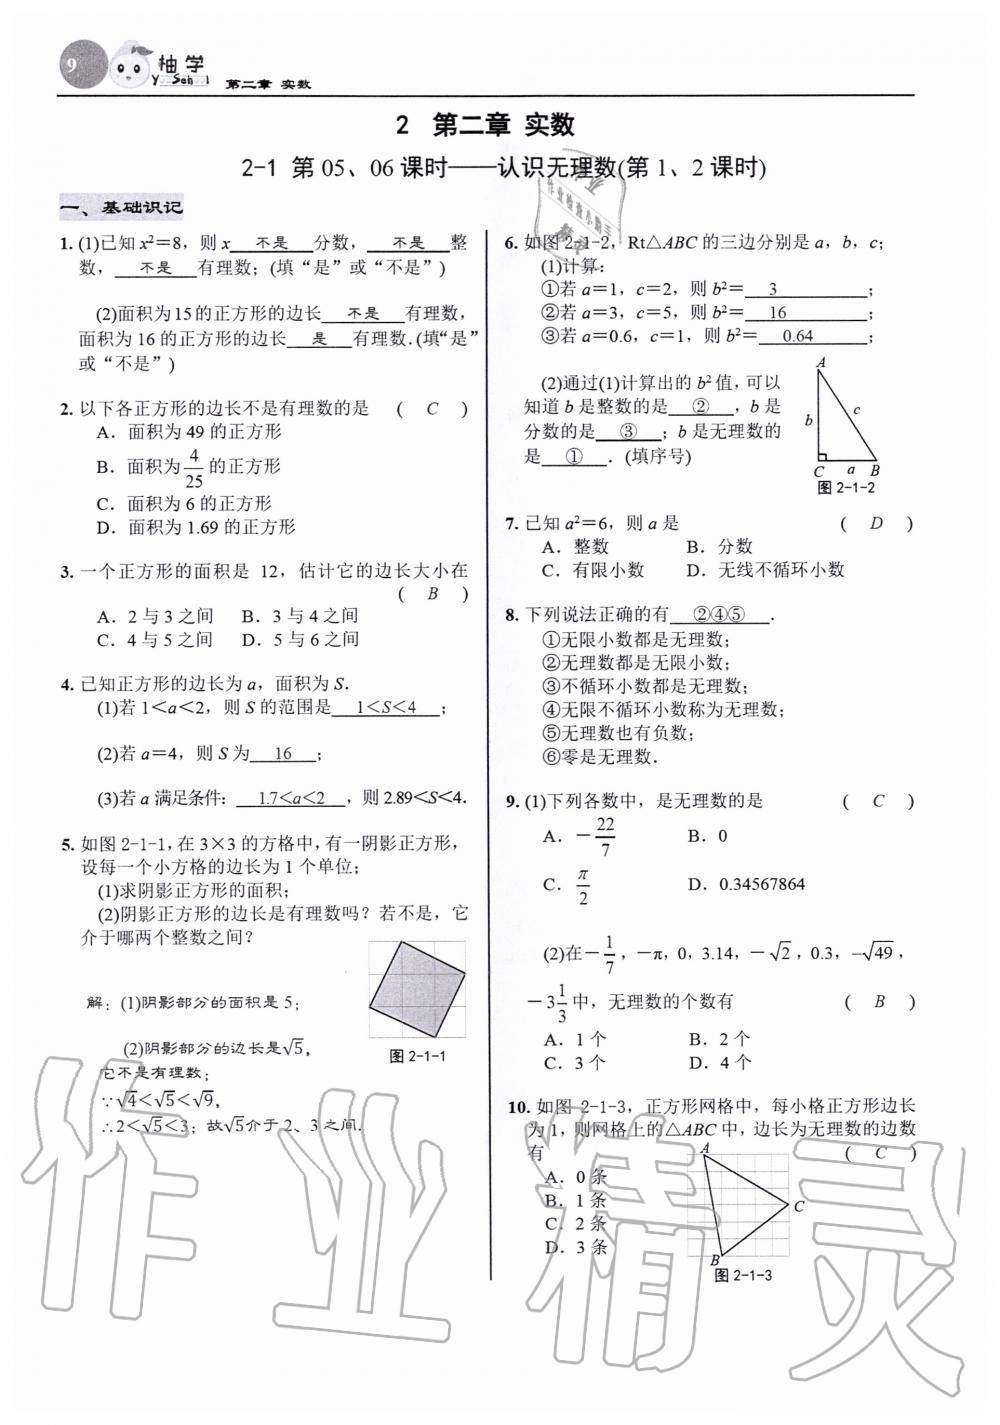 9
柚学
YouSchool
第二章 实数
2 第二章 实数
2-1 第05、06课时——认识无理数(第1、2课时)
一、基础识记
1. (1)已知x²=8，则x 不是 分数， 不是 整
数， 不是 有理数；(填“是”或“不是”)
(2)面积为15的正方形的边长 不是 有理数，
面积为16的正方形的边长 是 有理数.(填“是”
或“不是”)
2. 以下各正方形的边长不是有理数的是 ( C )
A. 面积为49的正方形
B. 面积为4/25的正方形
C. 面积为6的正方形
D. 面积为1.69的正方形
3. 一个正方形的面积是12，估计它的边长大小在
( B )
A. 2与3之间 B. 3与4之间
C. 4与5之间 D. 5与6之间
4. 已知正方形的边长为a，面积为S.
(1)若1<a<2，则S的范围是 1<S<4 ；
(2)若a=4，则S为 16 ；
(3)若a满足条件： 1.7<a<2 ，则2.89<S<4.
5. 如图2-1-1,在3×3的方格中,有一阴影正方形，
设每一个小方格的边长为1个单位；
(1)求阴影正方形的面积；
(2)阴影正方形的边长是有理数吗？若不是，它
介于哪两个整数之间？
解：(1)阴影部分的面积是5；
(2)阴影部分的边长是√5，
它不是有理数；
∵√4<√5<√9，
∴2<√5<3；故√5介于2、3之间.
图2-1-1
6. 如图2-1-2，Rt△ABC的三边分别是a，b，c；
(1)计算：
①若a=1，c=2，则b²= 3 ；
②若a=3，c=5，则b²= 16 ；
③若a=0.6，c=1，则b²= 0.64 ；
(2)通过(1)计算出的b²值，可以
知道b是整数的是 ② ，b是
分数的是 ③ ；b是无理数的
是 ① .(填序号)
A
b
c
C a B
图2-1-2
7. 已知a²=6，则a是 ( D )
A. 整数 B. 分数
C. 有限小数 D. 无线不循环小数
8. 下列说法正确的有 ②④⑤ .
①无限小数都是无理数；
②无理数都是无限小数；
③不循环小数都是无理数；
④无限不循环小数称为无理数；
⑤无理数也有负数；
⑥零是无理数.
9. (1)下列各数中，是无理数的是 ( C )
A. －22/7 B. 0
C. π/2 D. 0.34567864
(2)在－1/7，－π，0，3.14，－√2，0.3，－√49，
－3 1/3中，无理数的个数有 ( B )
A. 1个 B. 2个
C. 3个 D. 4个
10. 如图2-1-3，正方形网格中，每小格正方形边长
为1，则网格上的△ABC中，边长为无理数的边数
有 ( C )
A. 0条
B. 1条
C. 2条
D. 3条
A
C
B
图2-1-3
作业精灵